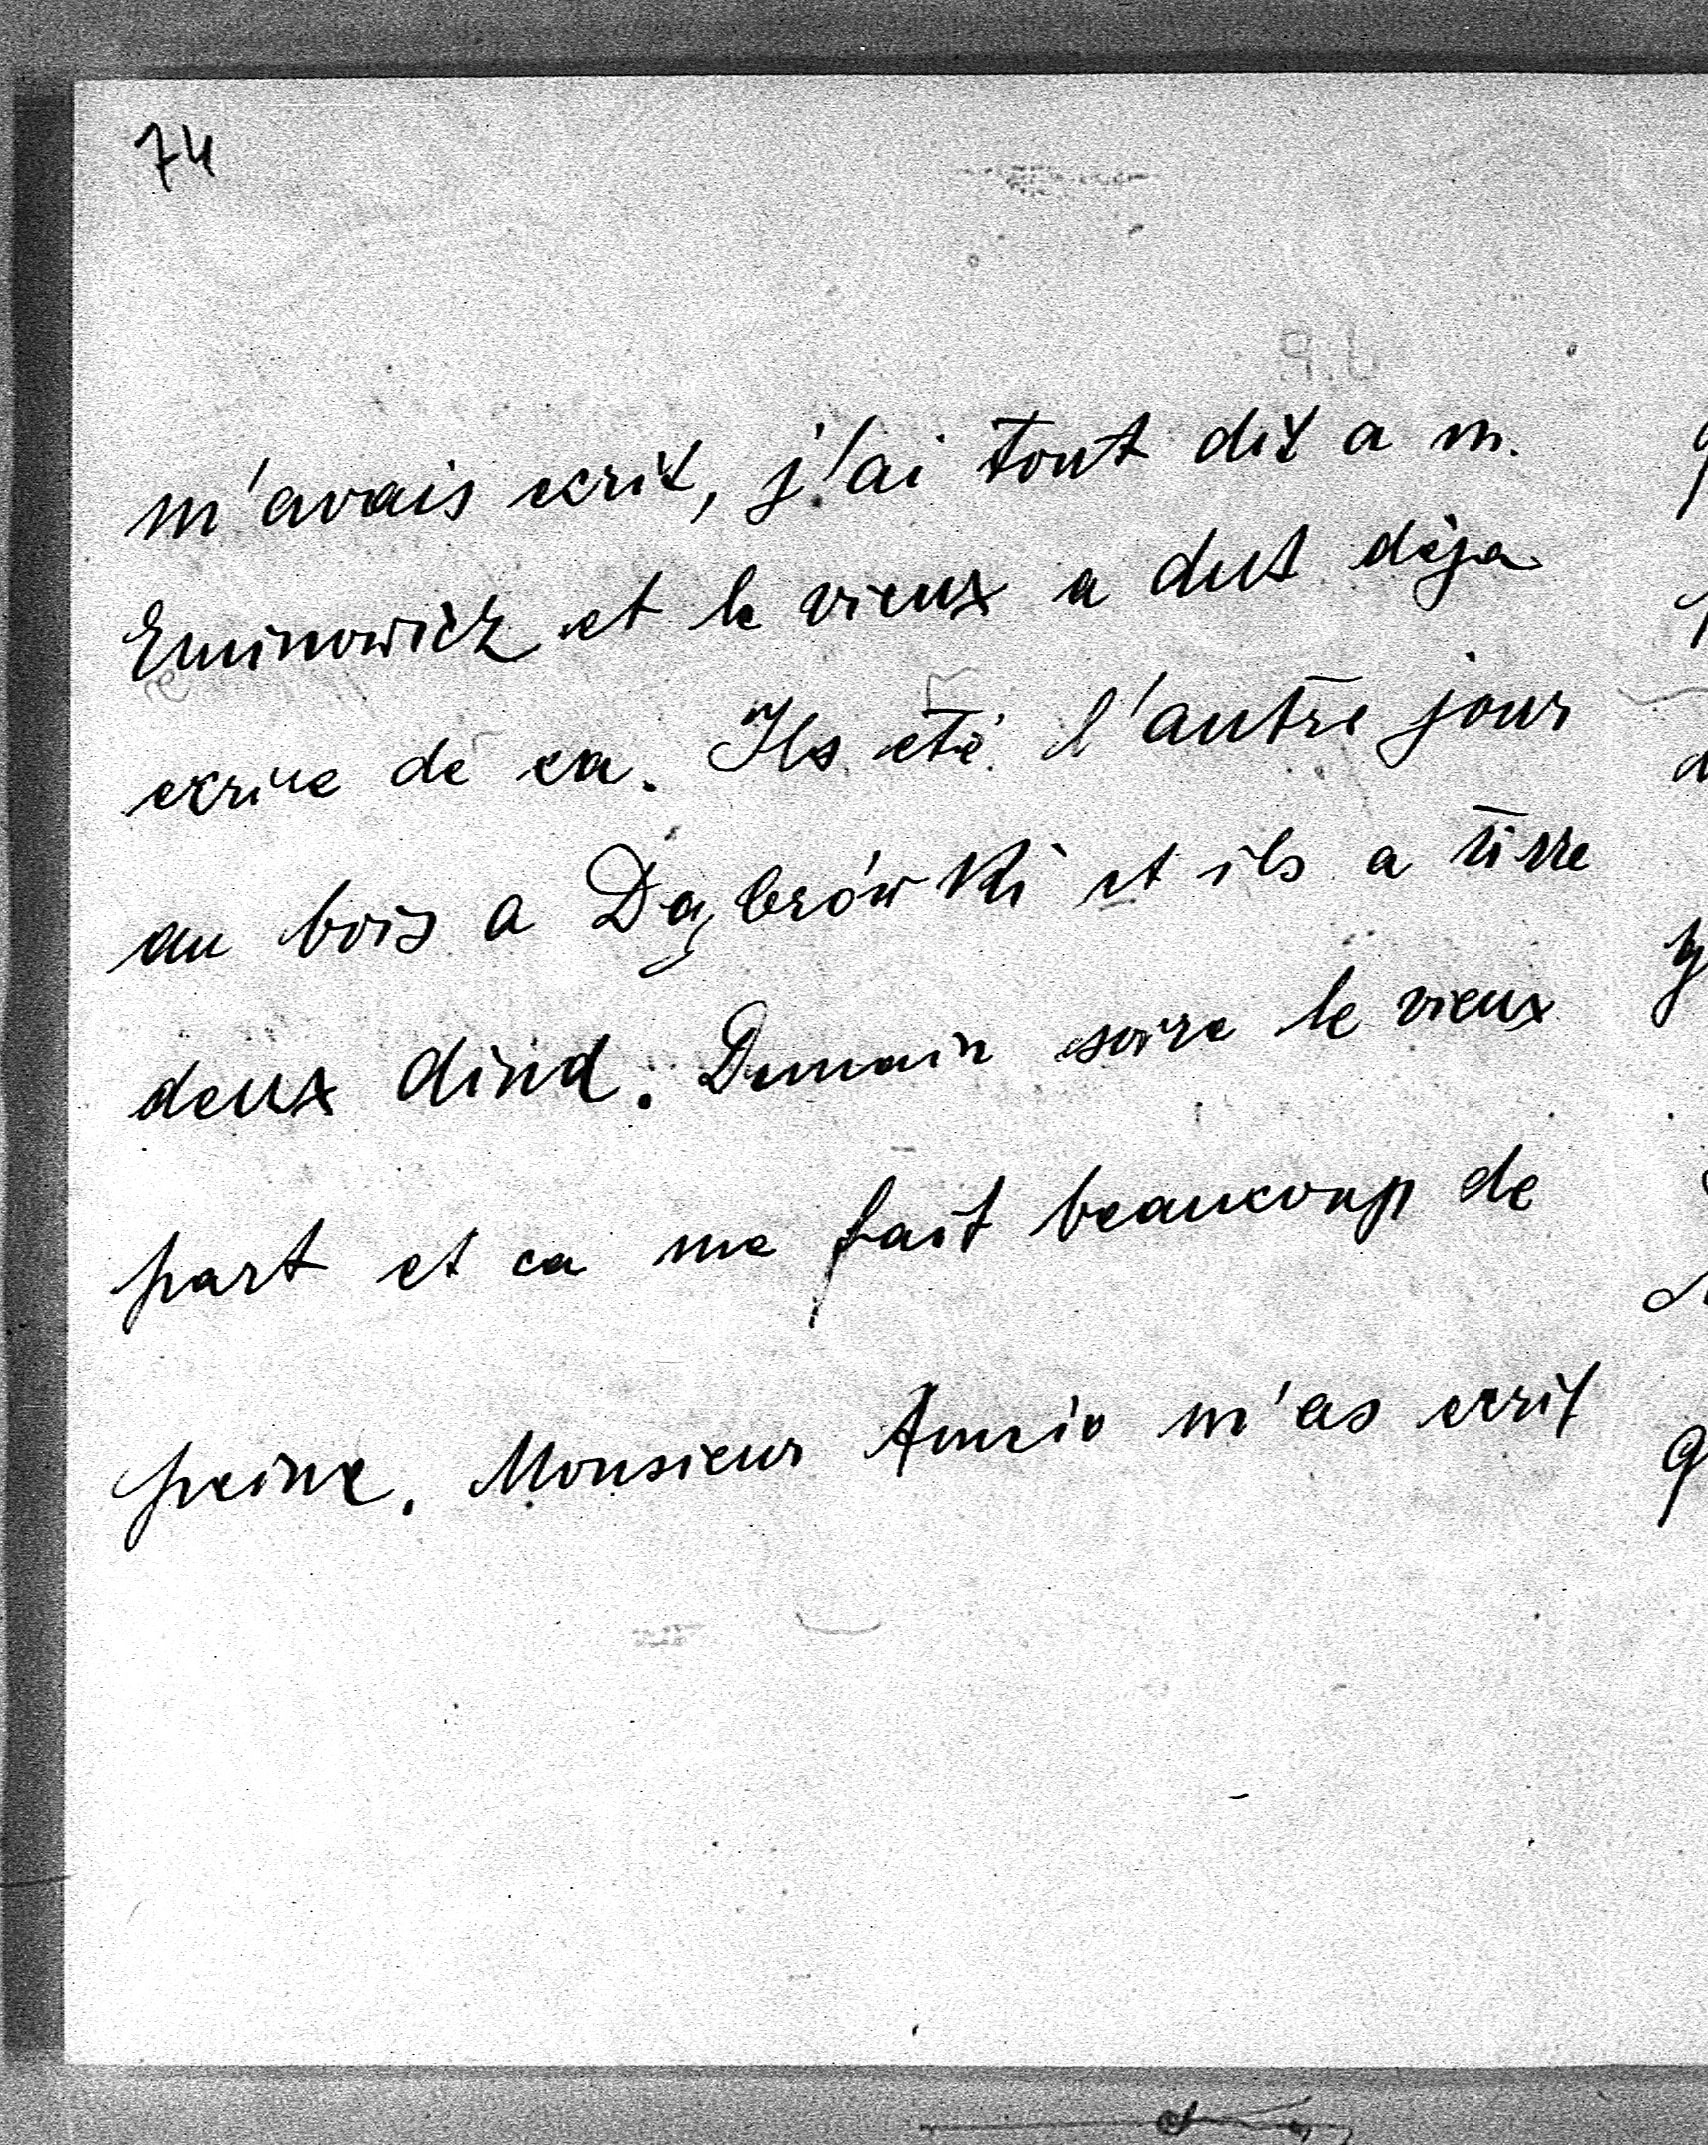 74
m'avais ecrit, j'ai tout dit a m.
Eminowicz et le vieux a dut déja
ecrire de ca. Ils eté l'autre jour
au bois a Dąbrówki et ils a tirre
deux dind. Demain soire le vieux
part et ca me fait beaucoup de
peine. Monsieur m'as ecrit